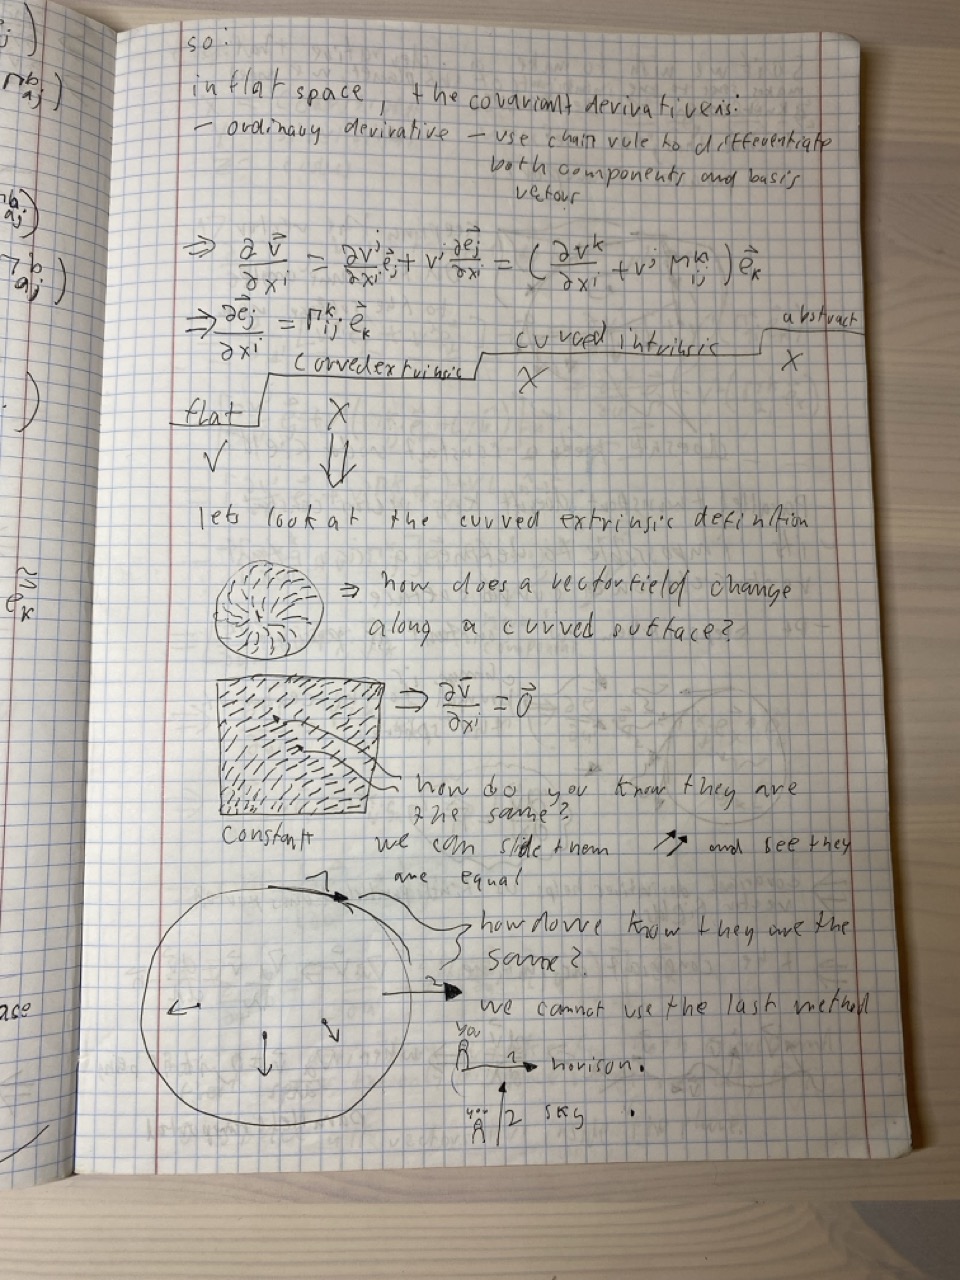 j)
Γᵇₐⱼ)
ᵇₐⱼ)
Γᵇₐⱼ)
.)
e⃗ₖ
ace
so:
in flat space, the covariant derivative is:
- ordinary derivative - use chain rule to differentiate
both components and basis
vectors
⇒ ∂v⃗/∂xⁱ = ∂vʲ/∂xⁱ e⃗ⱼ + vʲ ∂e⃗ⱼ/∂xⁱ = (∂vᵏ/∂xⁱ + vʲ Γᵏᵢⱼ) e⃗ₖ
⇒ ∂e⃗ⱼ/∂xⁱ = Γᵏᵢⱼ e⃗ₖ
flat curved extrinsic curved intrinsic abstract
✓ X X X
lets look at the curved extrinsic definition
⇒ how does a vectorfield change
along a curved surface?
⇒ ∂v⃗/∂xⁱ = 0⃗
how do you know they are
the same?
constant
we can slide them and see they
are equal
1
how do we know they are the
same?
2
we cannot use the last method
you
1 → horison.
you
2 sky .